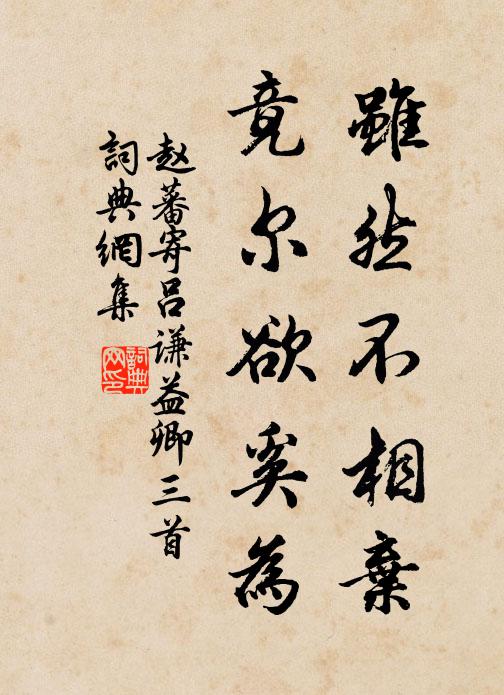 雖然不相棄
竟尔欲奚為
赵蕃寄吕谦益卿三首
詞典網集
詞典網印